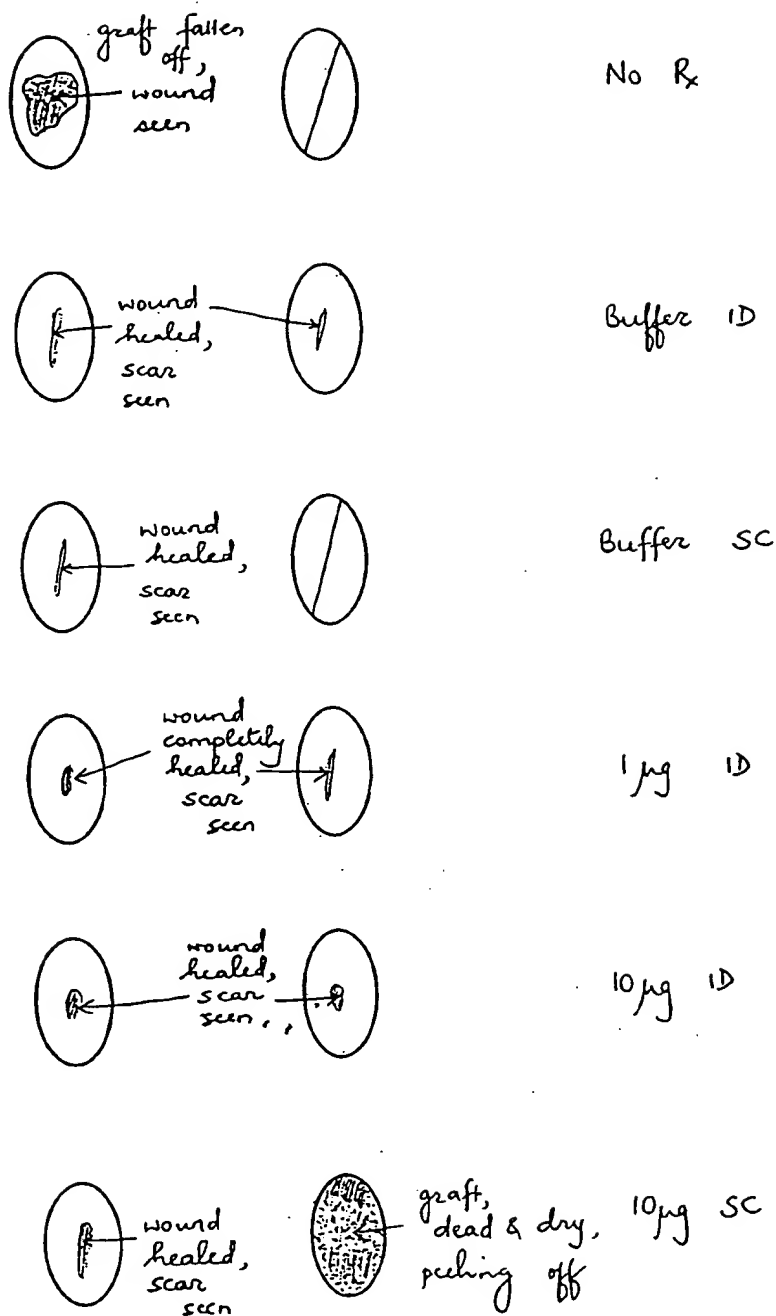 graft fallen
off,
wound
seen
No Rx
wound
healed,
scar
seen
Buffer ID
wound
healed,
scar
seen
Buffer SC
wound
completely
healed,
scar
seen
1 μg ID
wound
healed,
scar
seen
10 μg ID
wound
healed,
scar
seen
graft,
dead & dry,
peeling off
10 μg SC